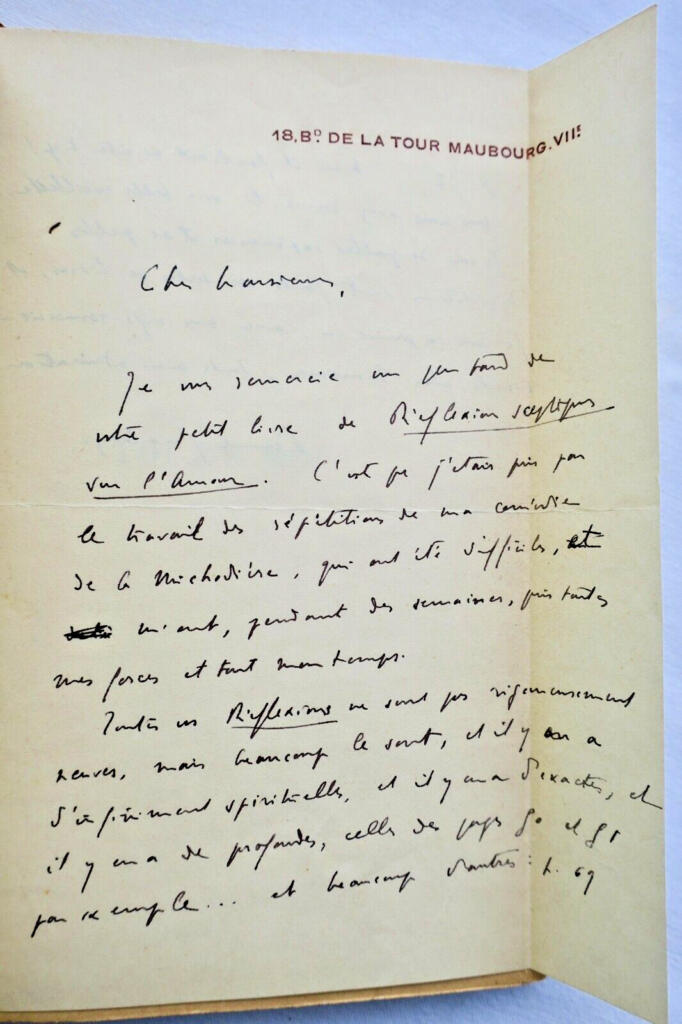 18, Bᴰ. DE LA TOUR MAUBOURG. VIIᴱ
Cher Monsieur,
Je vous remercie un peu tard de
votre petit livre de Réflexions sceptiques
sur l'Amour. C'est que j'étais pris par
le travail des répétitions de ma comédie
de la Michodière, qui ont été difficiles, et
m'ont, pendant des semaines, pris toutes
mes forces et tout mon temps.
Toutes vos Réflexions ne sont pas rigoureusement
neuves, mais beaucoup le sont, et il y en a
d'infiniment spirituelles, et il y en a d'exactes, et
il y en a de profondes, celles des pages
par exemple... et beaucoup d'autres : p. 69